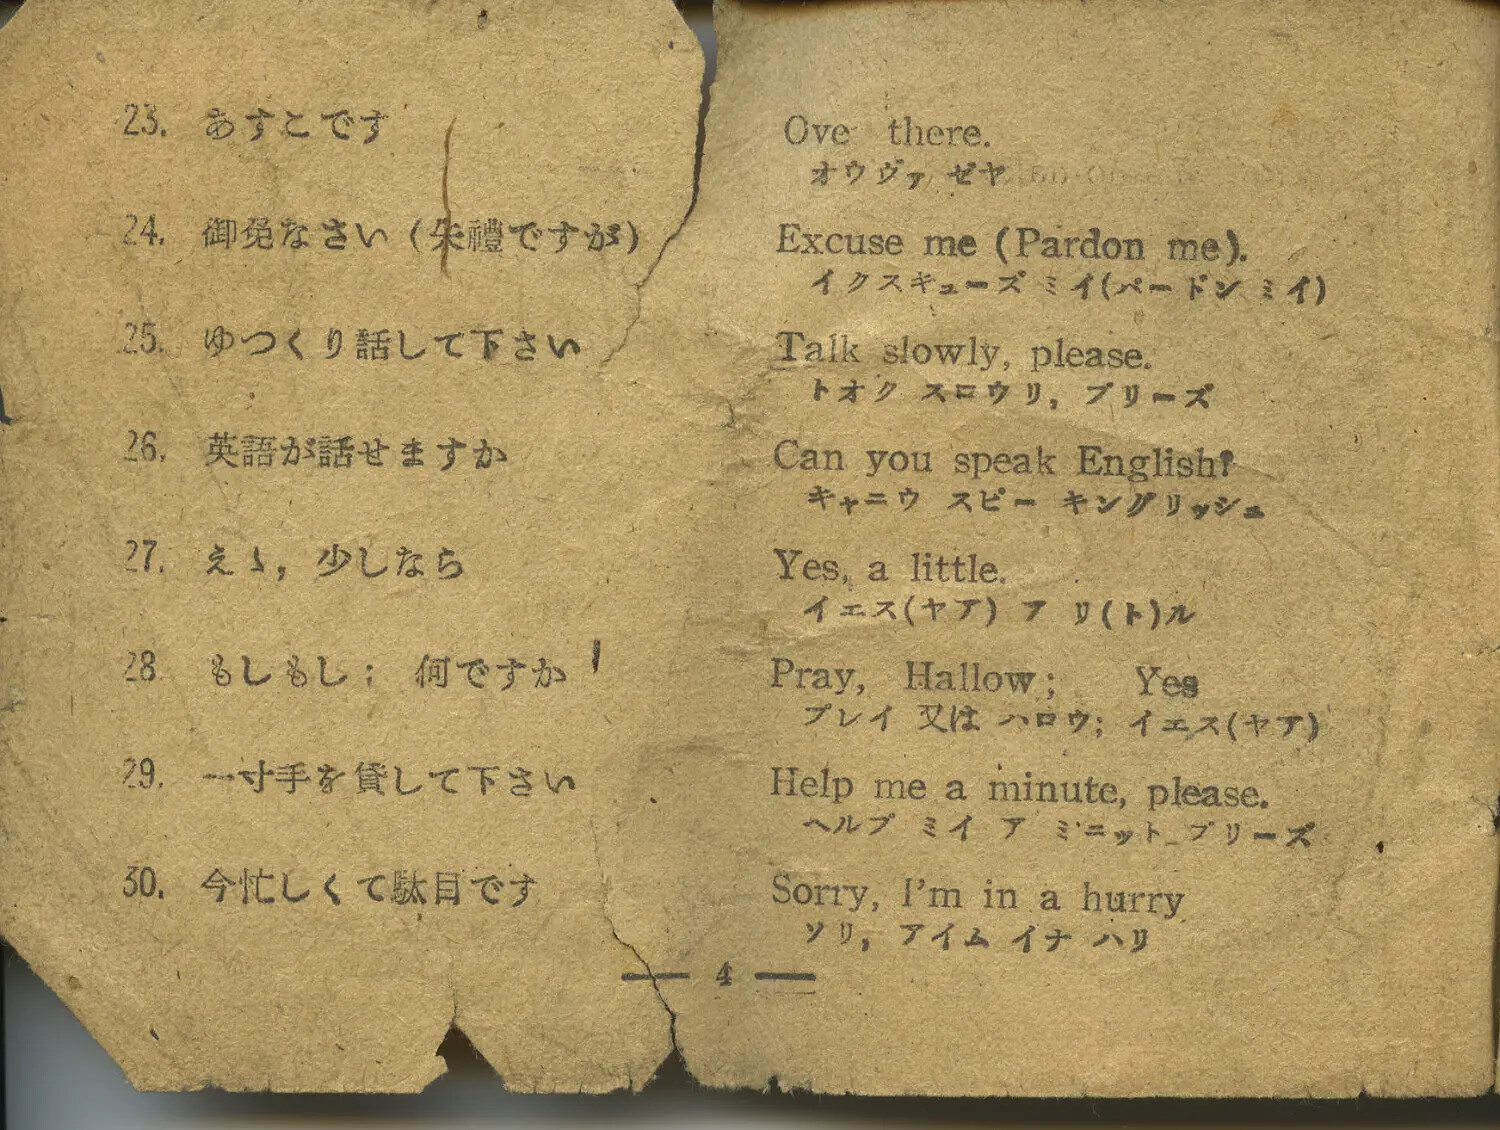 23. あすこです
Ove there.
オウヴァ ゼヤ
24. 御免なさい (失禮ですが)
Excuse me (Pardon me).
イクスキューズ ミイ(パードン ミイ)
25. ゆつくり話して下さい
Talk slowly, please.
トオク スロウリ, プリーズ
26. 英語が話せますか
Can you speak English?
キャニウ スピー キングリッシュ
27. えゝ, 少しなら
Yes, a little.
イエス(ヤア) ア リ(ト)ル
28 もしもし; 何ですか
Pray, Hallow; Yes
プレイ 又は ハロウ; イエス(ヤア)
29. 一寸手を貸して下さい
Help me a minute, please.
ヘルプ ミイ ア ミニット プリーズ
30. 今忙しくて駄目です
Sorry, I'm in a hurry
ソリ, アイム イナ ハリ
— 4 —